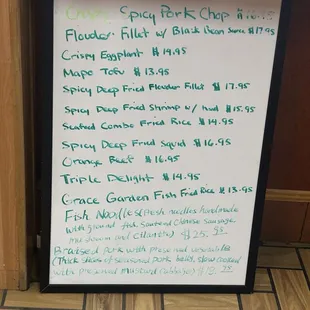 Crispy Spicy Pork Chop $16.95
Flouder Fillet w/ Black Bean Sauce $17.95
Crispy Eggplant $14.95
Mapo Tofu $13.95
Spicy Deep Fried Flouder Fillet $17.95
Spicy Deep Fried Shrimp w/ hud $15.95
Seafood Combo Fried Rice $14.95
Spicy Deep Fried Squid $16.95
Orange Beef $16.95
Triple Delight $14.95
Grace Garden Fish Fried Rice $13.95
Fish Noodles (fresh noodles handmade
with ground fish, sauteed Chinese sausage
mushroom and cilantro) $25.95
Braised pork with preserved vegetable
(Thick slices of seasoned pork belly, slow cooked
with preserved mustard cabbage) $